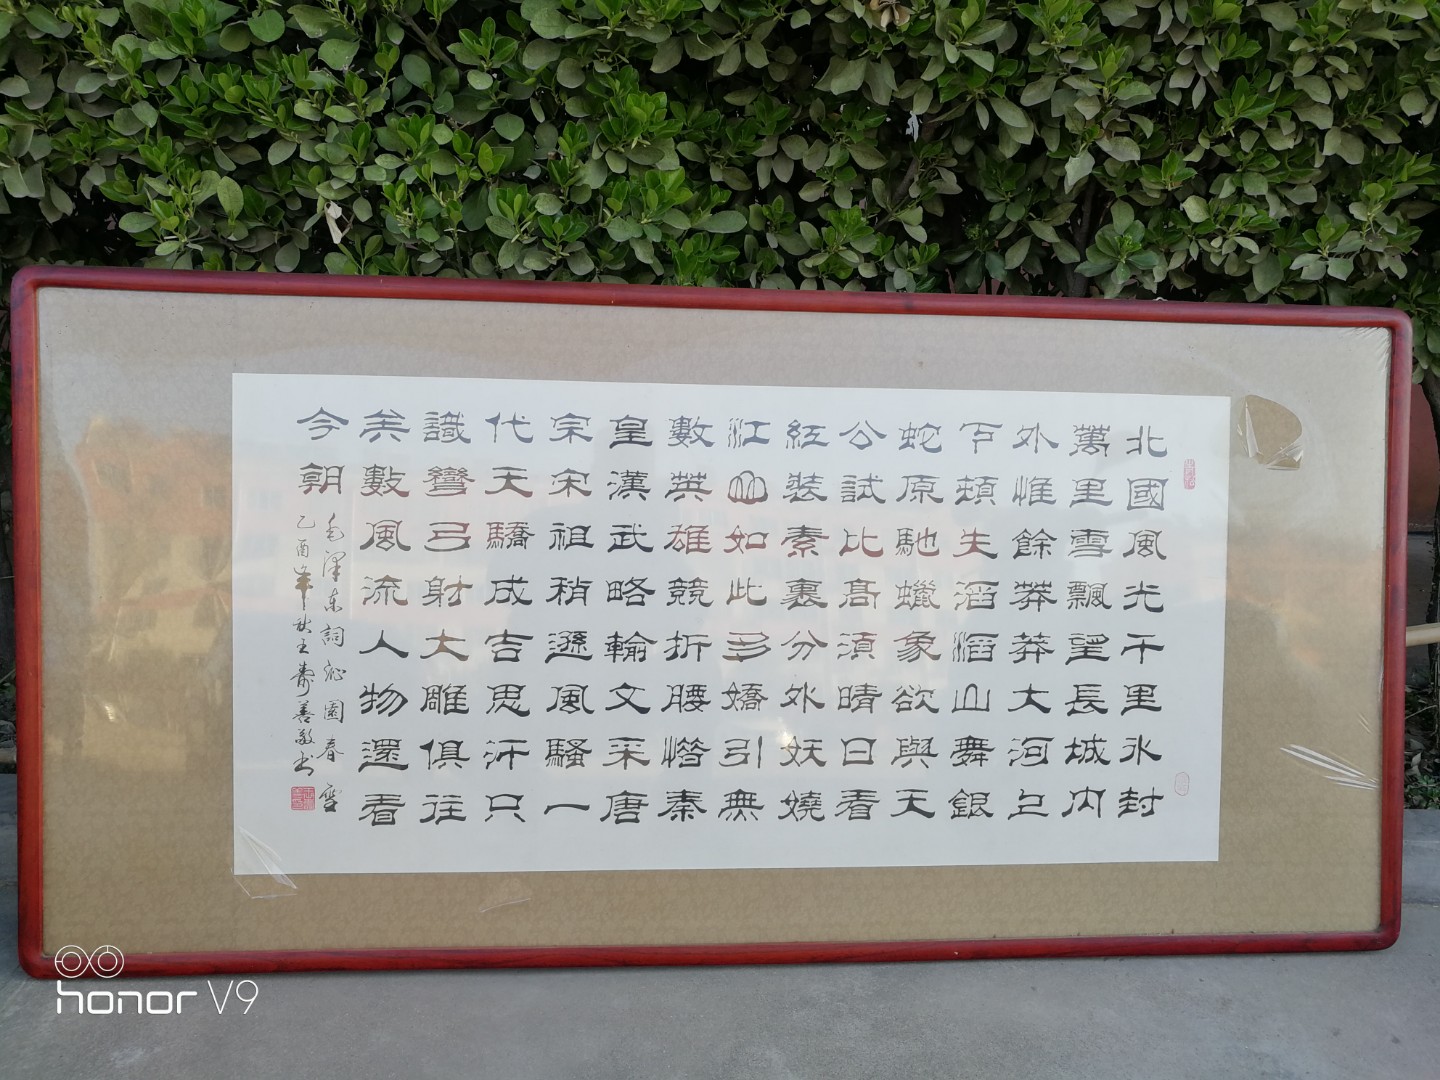 北國風光千里冰封
萬里雪飄望長城內
外惟餘莽莽大河上
下頓失滔滔山舞銀
蛇原馳蠟象欲與天
公試比高須晴日看
紅裝素裹分外妖嬈
江山如此多嬌引無
數英雄競折腰惜秦
皇漢武略輸文采唐
宗宋祖稍遜風騷一
代天驕成吉思汗只
識彎弓射大雕俱往
矣數風流人物還看
今朝
毛澤东詞沁園春雪
乙酉年秋王壽善敬书
honor V9